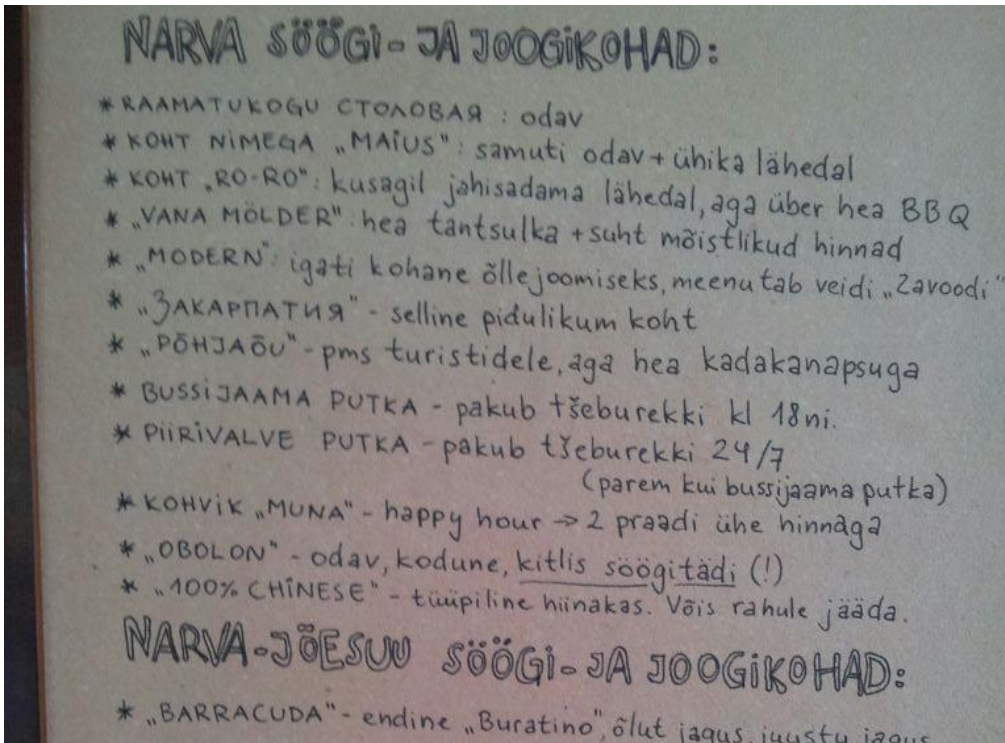 NARVA SÖÖGI- JA JOOGIKOHAD:
* RAAMATUKOGU СТОЛОВАЯ : odav
* KOHT NIMEGA „MAIUS": samuti odav + ühika lähedal
* KOHT „RO-RO": kusagil jahisadama lähedal, aga über hea BBQ
* „VANA MÖLDER": hea tantsulka + suht mõistlikud hinnad
* „MODERN": igati kohane õllejoomiseks, meenutab veidi „Zavoodi"
* „ЗАКАРПАТИЯ" - selline pidulikum koht
* „PÕHJAÕU" - pms turistidele, aga hea kadakanapsuga
* BUSSIJAAMA PUTKA - pakub tšeburekki kl 18ni.
* PIIRIVALVE PUTKA - pakub tšeburekki 24/7
(parem kui bussijaama putka)
* KOHVIK „MUNA" - happy hour -> 2 praadi ühe hinnaga
* „OBOLON" - odav, kodune, kitlis söögitädi (!)
* „100% CHINESE" - tüüpiline hiinakas. Võis rahule jääda.
NARVA-JÕESUU SÖÖGI- JA JOOGIKOHAD:
* „BARRACUDA" - endine „Buratino", õlut jagus, juustu jagus